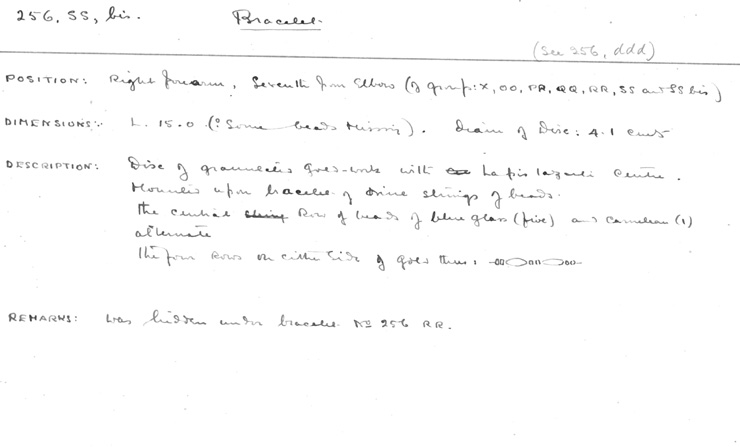 256, SS, bis. Bracelet.
(See 256, ddd)
POSITION: Right forearm, Seventh from Elbow (of group: X, OO, PP, QQ, RR, SS and SS bis)
DIMENSIONS: L. 15.0 (? Some beads missing). Diam of Disc: 4.1 cents
DESCRIPTION: Disc of granulated gold-work with Lapis lazuli centre.
Mounted upon bracelet of nine strings of beads.
The central string Row of beads of blue glass (five) and carnelian (1)
alternate
The four Rows on either side of gold thus:
REMARKS: Was hidden under bracelet No 256 RR.